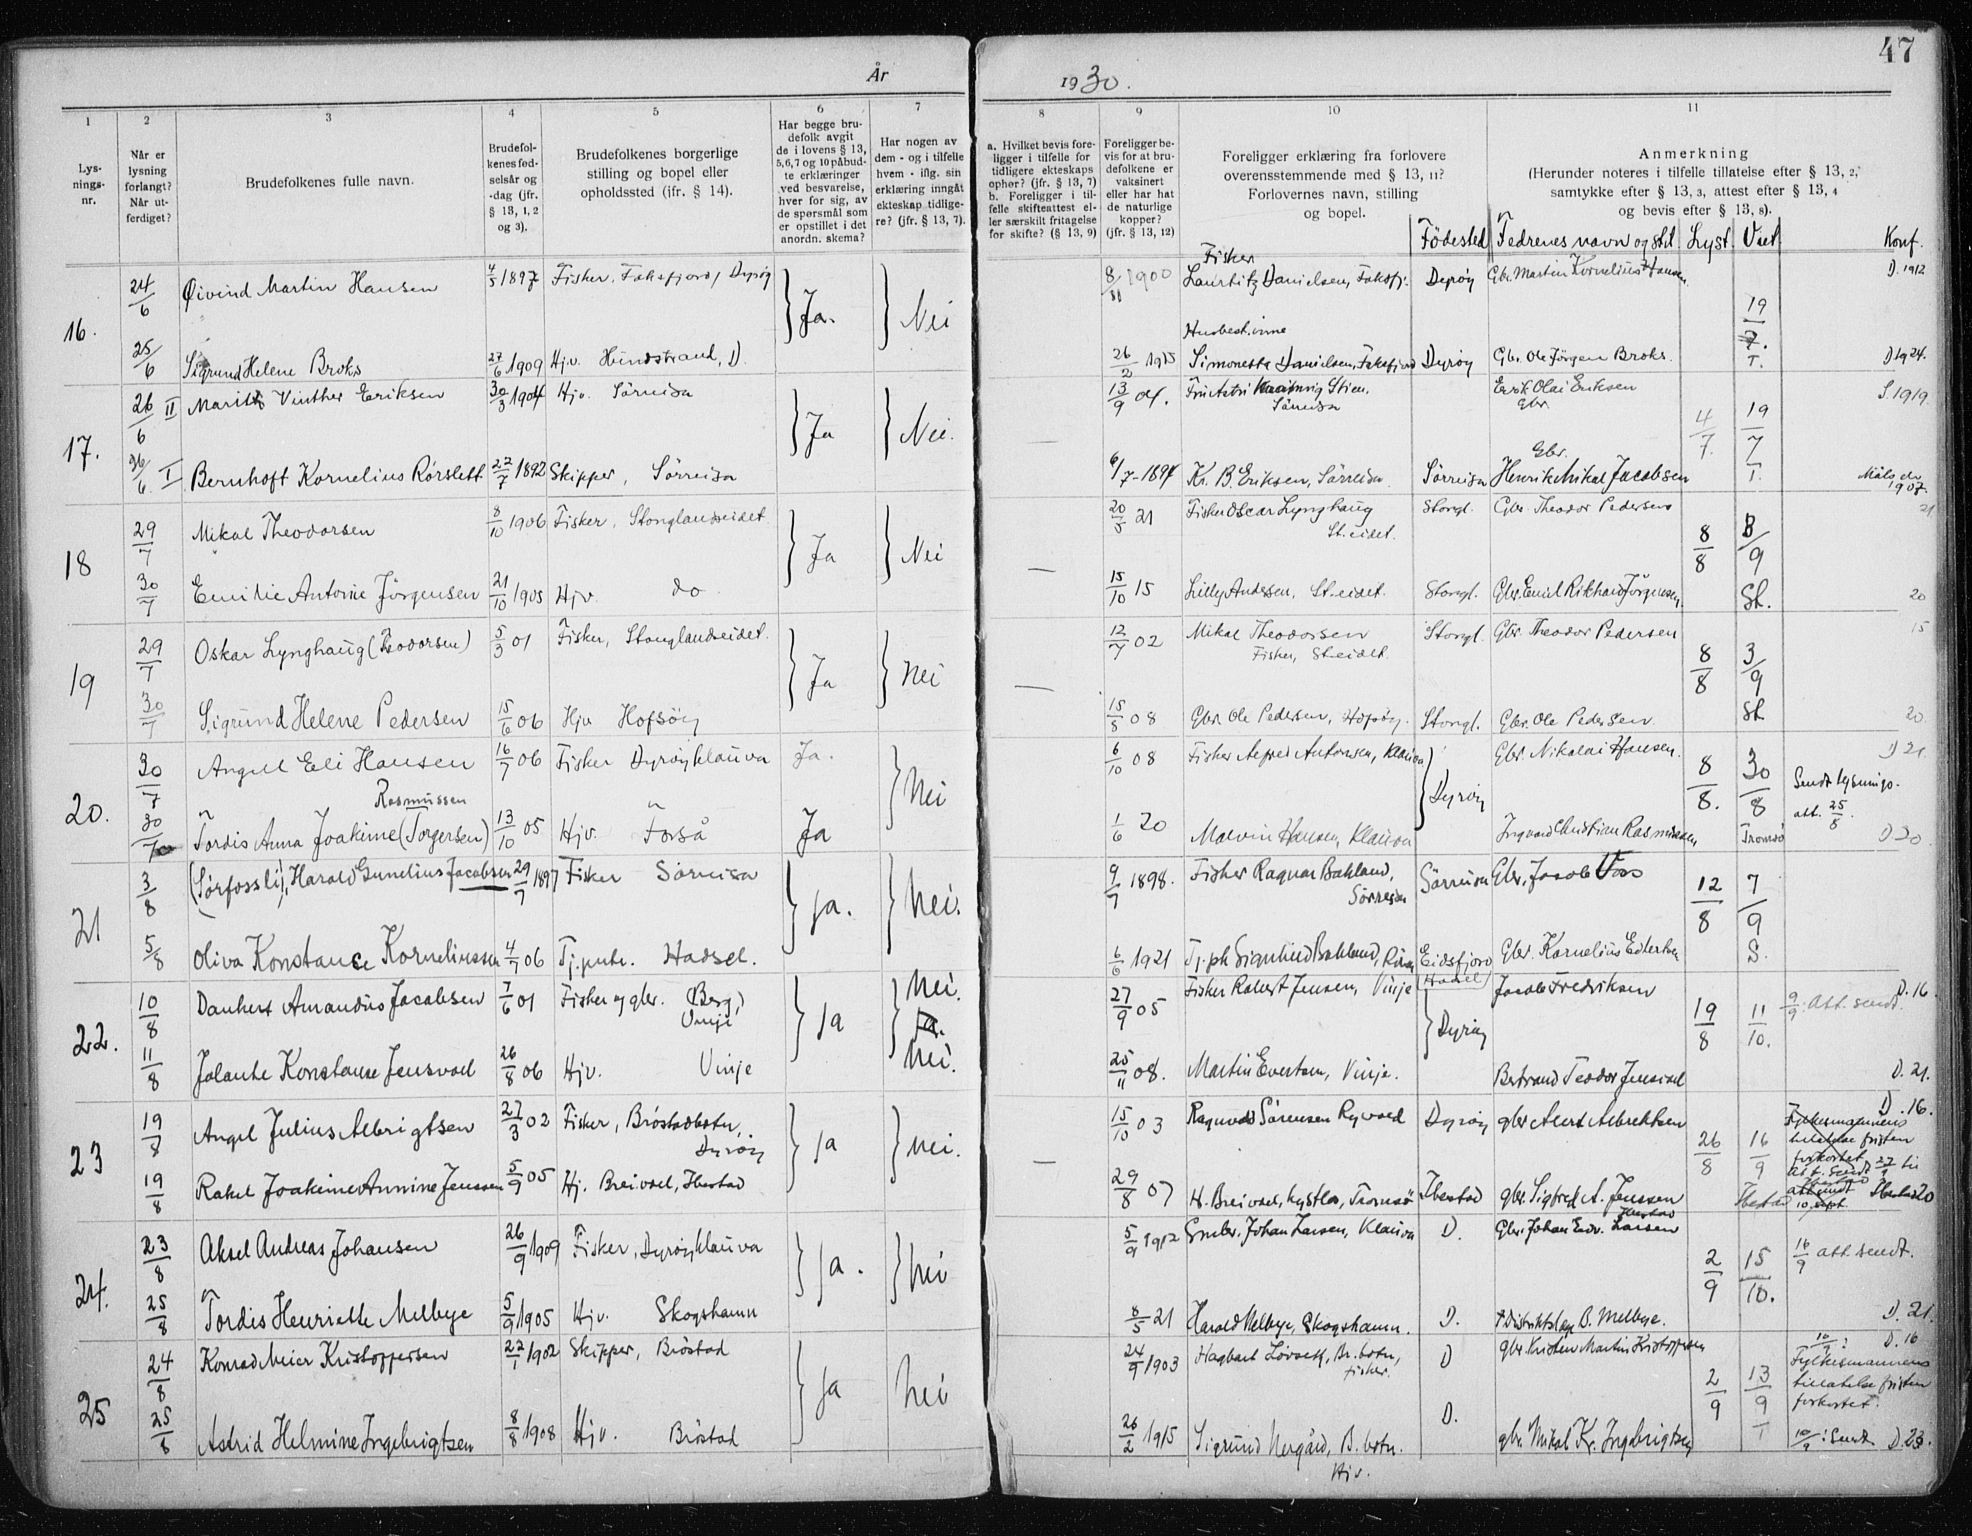 47
År 1930.
1 2 3 4 5 6 7 8 9 10 11
Lys-
nings-
nr.
Når er
lysning
forlangt?
Når ut-
ferdiget?
Brudefolkenes fulle navn.
Brudefol-
kenes fød-
selsår og
-dag (jfr.
§ 13, 1, 2
og 3).
Brudefolkenes borgerlige
stilling og bopel eller
opholdssted (ifr. § 14).
Har begge bru-
defolk avgit
de i lovens § 13,
5,6,7 og 10 påbud-
te erklæringer
ved besvarelse,
hver for sig, av
de spørsmål som
er opstillet i det
anordn. skema?
Har nogen av
dem - og i tilfelle
hvem - iflg. sin
erklæring inngåt
ekteskap tidlige-
re? (jfr. § 13, 7).
a. Hvilket bevis fore-
ligger i tilfelle for
tidligere ekteskaps
ophør? (jfr. § 13, 7)
b. Foreligger i til-
felle skifteattest el-
ler særskilt fritagelse
for skifte? (§ 13, 9)
Foreligger be-
vis for at bru-
defolkene er
vaksinert
eller har hat
de naturlige
kopper?
(jfr. § 13, 12)
Foreligger erklæring fra forlovere
overensstemmende med § 13, 11?
Forlovernes navn, stilling
og bopel.
Anmerkning
(Herunder noteres i tilfelle tillatelse efter § 13, 2,
samtykke efter § 13, 3, attest efter § 13, 4
og bevis efter § 13, 8).
Fødested Fedrenes navn og stil. Lyst Viet Konf.
16. 24/6 Øivind Martin Hansen 4/5 1897 Fisker, Faksfjord, Dyrøy Ja. Nei 8/11 1900 Fisker Lauritz Danielsen, Faksfj. Dyrøy Gbr. Martin Kornelius Hansen 19/7. T. D. 1912
25/6 Sigrund Helene Broks 27/6 1909 Hjv. Hundstrand, D. 26/2 1915 Husbest.inne Simonette Danielsen, Faksfjord Dyrøy Gbr. Ole Jørgen Broks. D 1924.
17. 26/6 II Marit Vinther Eriksen 30/3 1904 Hjv. Sörreisa Ja Nei. — 13/9 04. Stien. Sörreisa Erik Olai Eriksen Gbr. 4/7. 19/7 T. S. 1919.
26/6. I Bernhoft Kornelius Rörslett 22/7 1892 Skipper, Sörreisa 6/7-1894 Kr. B. Eriksen, Sörreisa Sörreisa Gbr. Henrik Mikal Jacobsen 1907.
18 29/7 Mikal Theodorsen 8/10 1906 Fisker, Stonglandseidet Ja Nei — 20/5 21 Fisker Oscar Lynghaug St.eidet. Stongl. Gbr. Theodor Pedersen 8/8 3/9 St. 21
30/7 Emilie Antonie Jörgensen 21/10 1905 Hjv. do 15/10 15 Lilly Andersen, St.eidet. Stongl. Gbr. Emil Rikhard Jörgensen. 20
19 29/7 Oskar Lynghaug (Teodorsen) 5/3 01 Fisker, Stonglandseidet. Ja Nei — 12/7 02 Mikal Theodorsen Fisker, St.eidet. Stongl. Gbr. Theodor Pedersen 8/8 3/9 St. 15
30/7 Sigrund Helene Pedersen 15/6 06 Hjv Hofsöy 15/5 08 Gbr. Ole Pedersen, Hofsöy. Stongl. Gbr. Ole Pedersen. 20.
20. 30/7 Angell Eli Hansen 16/7 06 Fisker Dyröyklauva Ja. Nei 6/10 08 Fisker Antonsen, Klauva Dyröy Gbr. Nikolai Hansen. 8/8. 30/8 Tromsö Sendt lysnings- att. 25/8. D 21.
30/7 Tordis Anna Joakime (Torgersen) Rasmussen 13/10 05 Hjv. Forså Ja 1/6 20 Malvin Hansen, Klauva Ingvard Christian Rasmussen D 20
21 3/8 (Sörfossli), Harald Cunelius Jacobsen 29/7 1897 Fisker Sörreisa Ja. Nei. 9/7 1898. Fisker Ragnar Bakland, Sörreisa Sörreisa Gbr. Jacob Voss 12/8 7/9 S.
5/8 Oliva Konstance Korneliussen 4/7 06 Tj.pike. Hadsel. 6/6 1921 Tj.pk Signhild Bakland, Eidsfjord (Hadsel) Gbr. Kornelius
22. 10/8 Dankert Amandus Jacobsen 7/6 01 Fisker og gbr. (Berg) Vinje Ja Nei. 27/9 05 Fisker Robert Jensen, Vinje Dyröy Jacob Fredriksen 19/8 11/10. 9/9. Att. sendt. D. 16.
11/8 Jolante Konstanse Jensvoel 26/8 06 Hjv. Vinje Nei. 25/11 08. Martin Evertsen, Vinje. Bertrand Teodor D. 21.
23 19/8 Angel Julius Albrigtsen 27/3 02 Fisker, Bröstadbotn, Dyröy Ja nei. — 15/10 03 Ragnvald Sörensen Dyröy gbr Albrektsen 26/8 16/9 Ibestad Fylkesmannens tillatelse fristen forkortet att. sendt 10. sept. D. 16.
19/8 Rakel Joakime Annine Jenssen 5/9 05 Hj. Breivoel, Ibestad 29/8 07 H. Breivoel, Tromsö Ibestad gbr. Sigfred A. Jenssen Ibestad Ibestad 20
24. 23/8 Aksel Andreas Johansen 26/9 1909 Fisker, Dyröyklauva Ja. Nei 5/9 1912 Johan Larsen, Klauva D. Gbr. Johan Edv. Larsen 2/9 15/10. 16/9 att. sendt.
25/8 Tordis Henriette Melbye 5/9 1905 Hjv. Skogshamn 8/5 21 Harald Melbye, Skogshamn. D. Distriktslege B. Melbye. D. 21.
25 24/8 Konrad Meier Kristoffersen 22/1 1902 Skipper, Bröstad Ja Nei 24/9 1903 Hagbart Lövseth, Br.botn, fisker. D gbr. Kristen Martin Kristoffersen 2/9 13/9 T 10/9: D. 16 Fylkesmannens tillatelse fristen forkortet.
25/8 Astrid Helmine Ingebrigtsen 8/8 1908 Hjv. Bröstad 26/2 1915 Sigrund Nergård, B.botn. Hjv. D. gbr. Mikal Kr. Ingebrigtsen 10/9: Sendt D. 23.